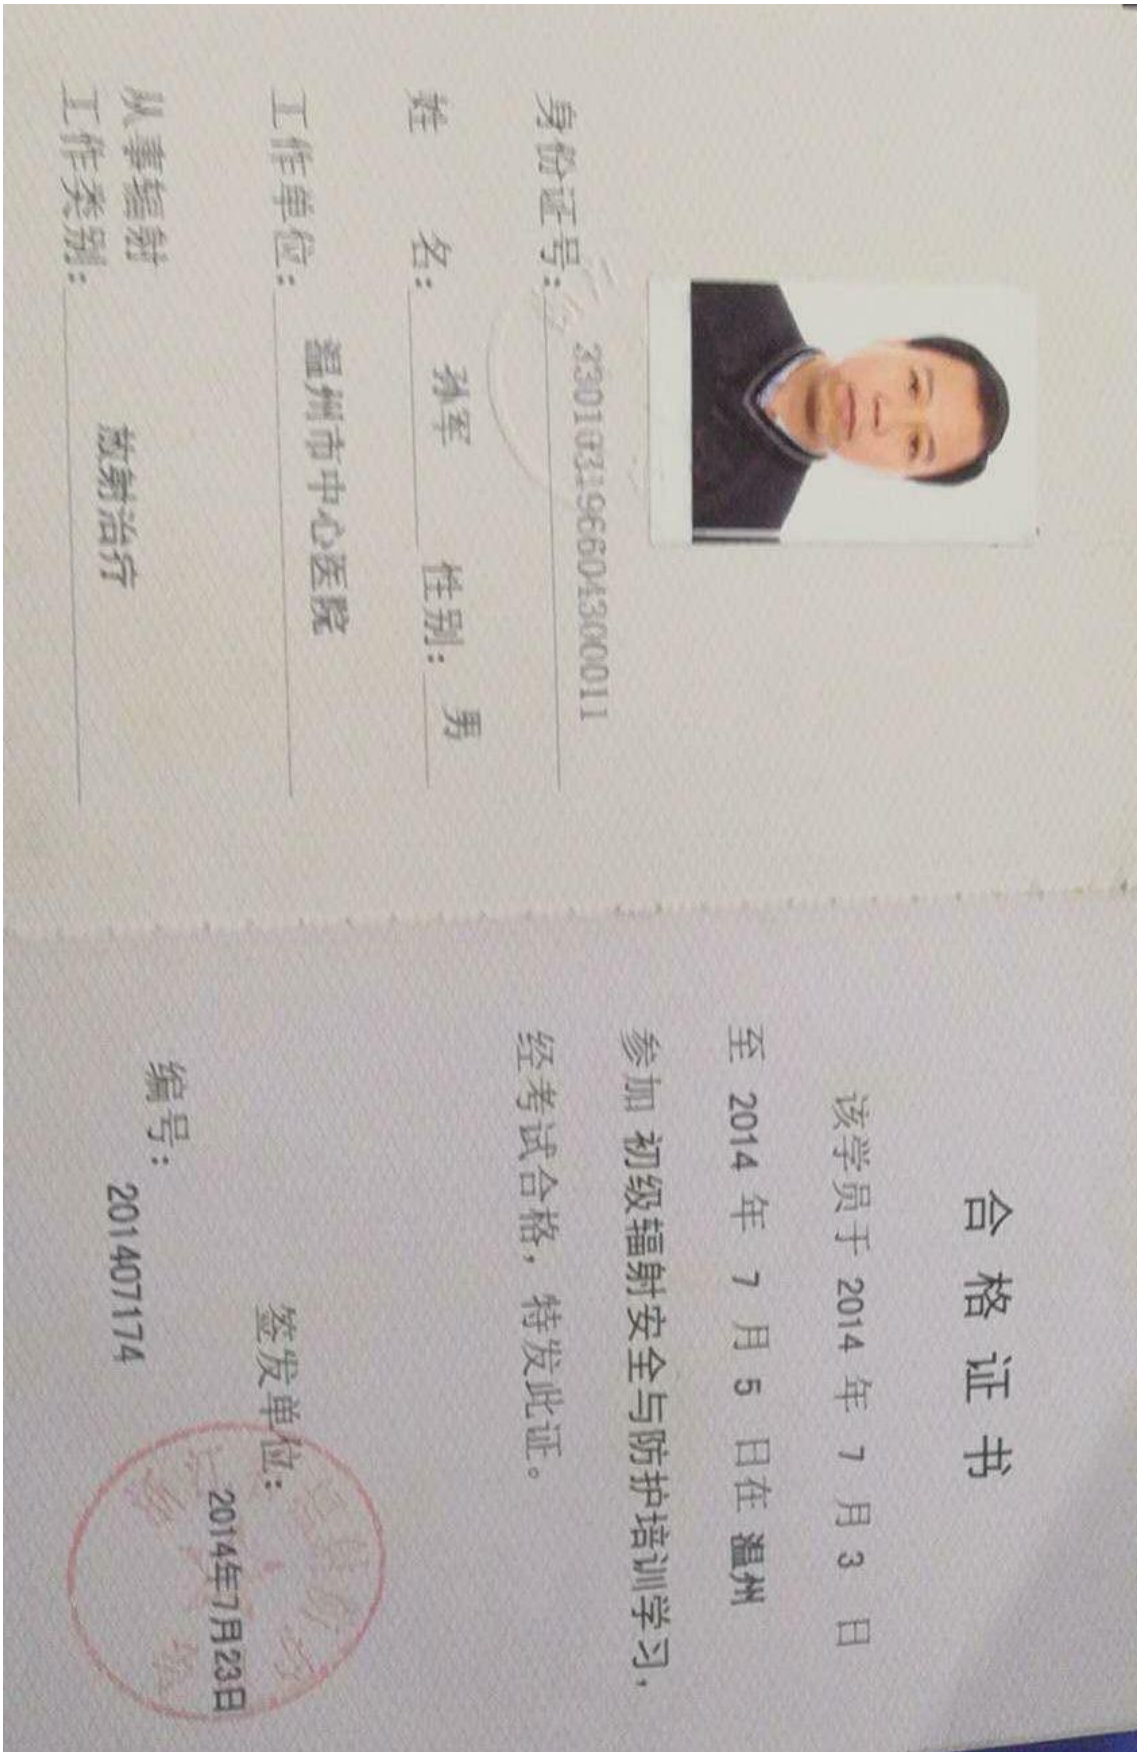 身份证号：330103196604300011
姓 名：孙军 性别：男
工作单位：温州市中心医院
从事辐射
工作类别：放射治疗
合格证书
该学员于 2014 年 7 月 3 日
至 2014 年 7 月 5 日在 温州
参加 初级辐射安全与防护培训学习，
经考试合格，特发此证。
签发单位：
2014年7月23日
编号：201407174